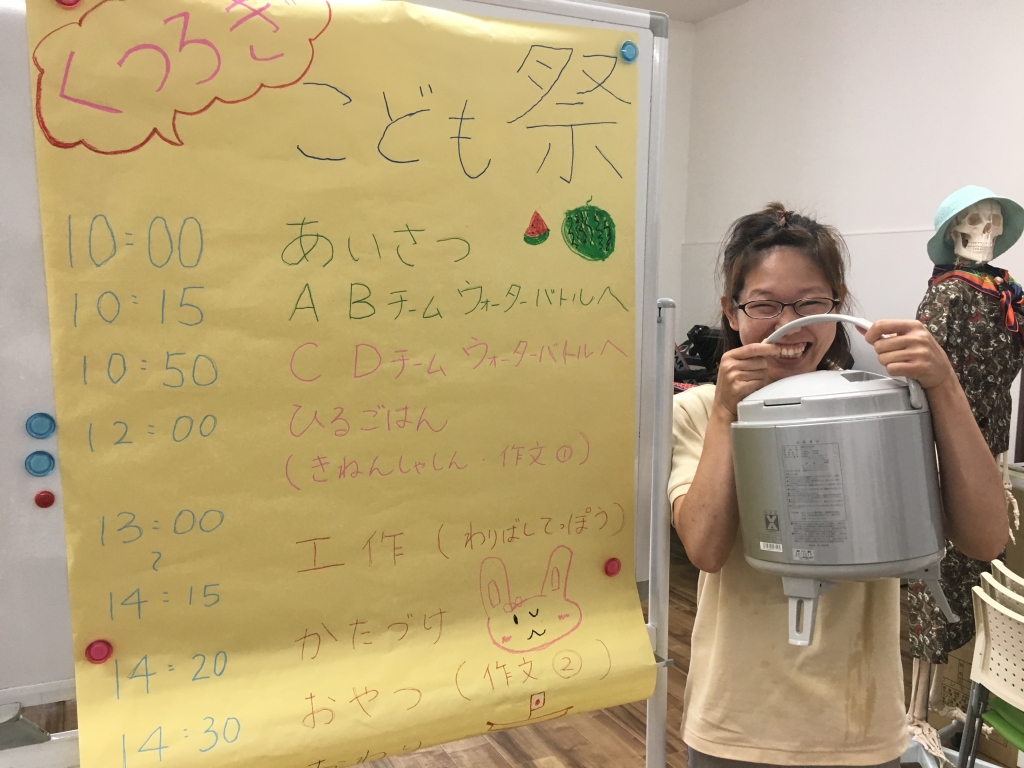 くつろぎ
こども祭
10:00 あいさつ
10:15 A Bチーム ウォーターバトルへ
10:50 C Dチーム ウォーターバトルへ
12:00 ひるごはん
(きねんしゃしん・作文①)
13:00 工作(わりばしてっぽう)
~
14:15
かたづけ
14:20
おやつ(作文②)
14:30